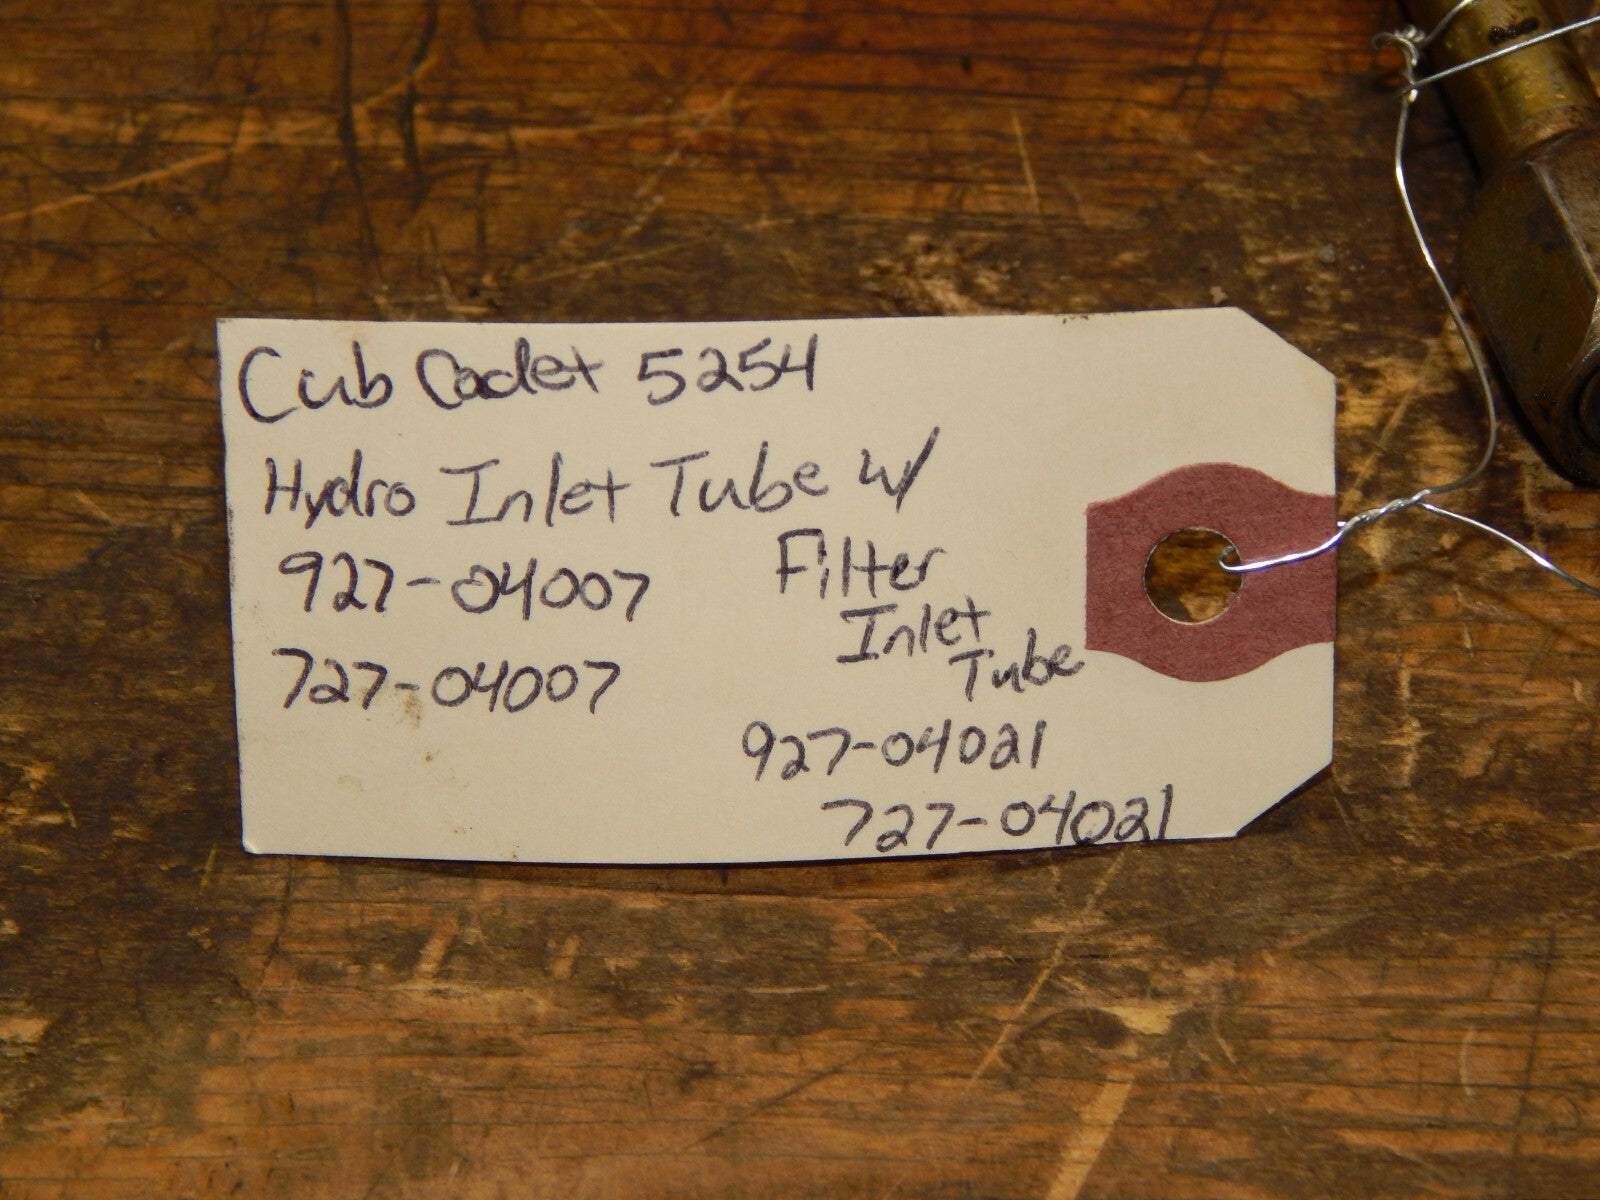 Cub Cadet 5254
Hydro Inlet Tube w/
Filter
Inlet
Tube
927-04007
727-04007
927-04021
727-04021